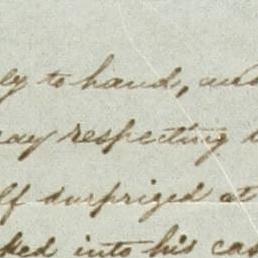 ly to hand, and
say respecting
lf surprized at
ked into his cas